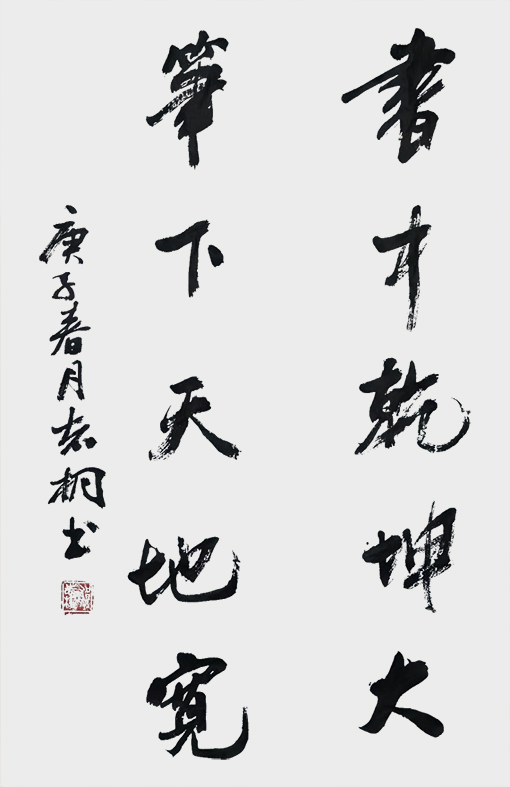 書中乾坤大
筆下天地寬
庚子春月桐书